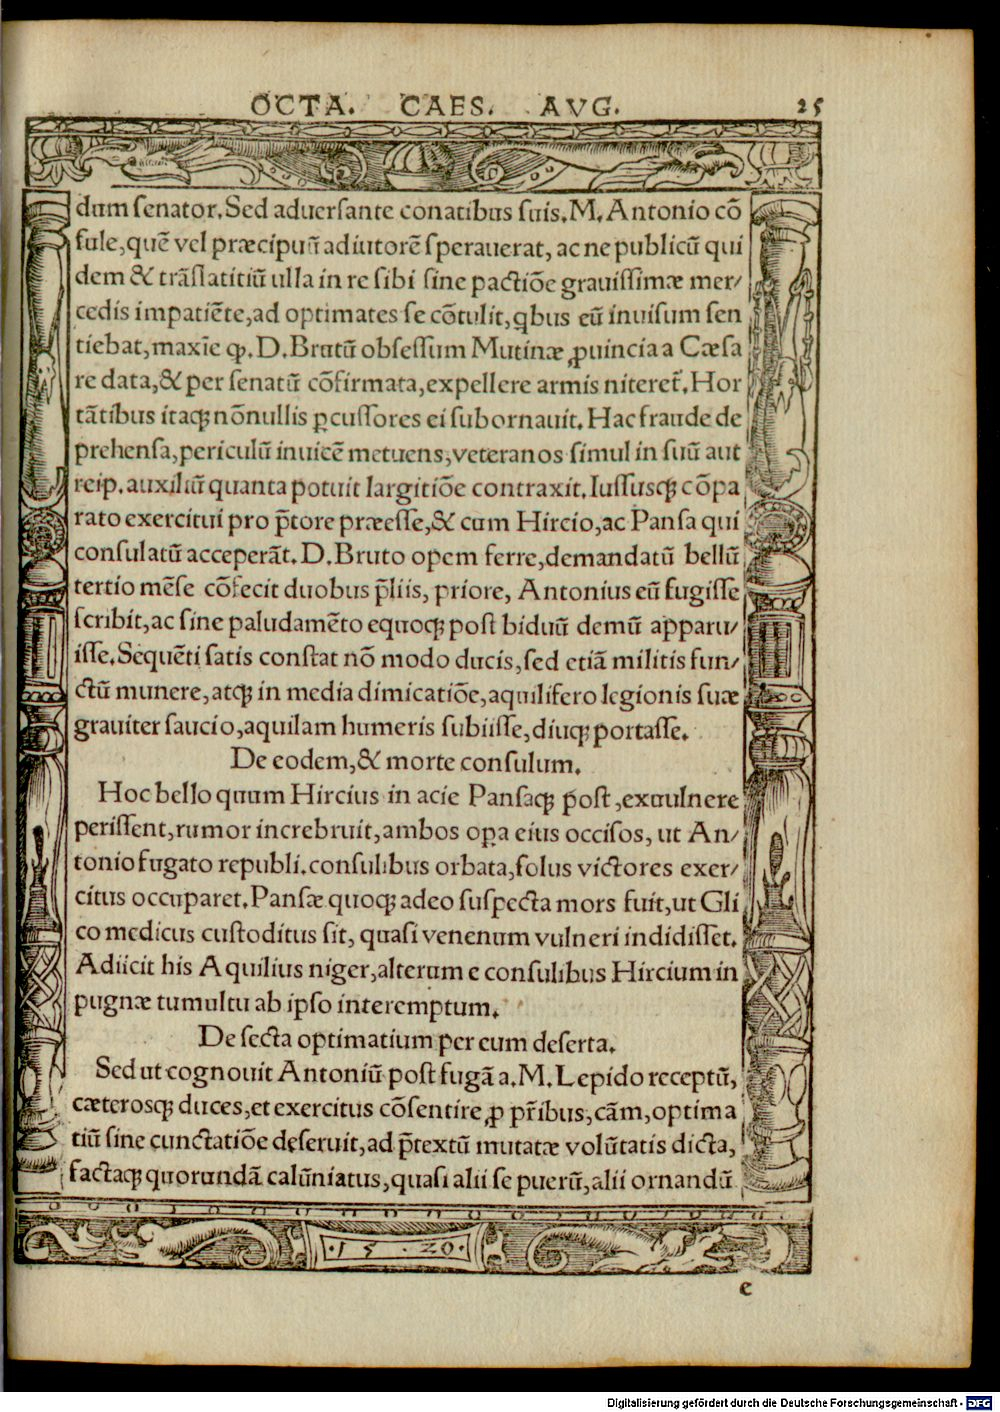 OCTA. CAES. AVG. 25
dum ſenator. Sed aduerſante conatibus ſuis. M. Antonio cō
ſule, quē vel præcipuū adiutorē ſperauerat, ac ne publicū qui
dem & trāſlatitiū ulla in re ſibi ſine pactiōe grauiſſimæ mer/
cedis impatiēte, ad optimates ſe cōtulit, qbus eū inuiſum ſen
tiebat, maxīe ꝙ. D. Brutū obſeſſum Mutinæ ꝓuincia a Cæſa
re data, & per ſenatū cōfirmata, expellere armis niteret̃. Hor
tātibus itaqꝫ nōnullis ꝑcuſſores ei ſubornauit. Hac fraude de
prehenſa, periculū inuicē metuens, veteranos ſimul in ſuū aut
reip. auxiliū quanta potuit largitiōe contraxit. Iuſſusqꝫ cōpa
rato exercitui pro p̄tore præeſſe, & cum Hircio, ac Panſa qui
conſulatū acceperāt. D. Bruto opem ferre, demandatū bellū
tertio mēſe cōfecit duobus p̄liis, priore, Antonius eū fugiſſe
ſcribit, ac ſine paludamēto equoqꝫ poſt biduū demū apparu/
iſſe. Sequēti ſatis conſtat nō modo ducis, ſed etiā militis fun/
ctū munere, atqꝫ in media dimicatiōe, aquilifero legionis ſuæ
grauiter ſaucio, aquilam humeris ſubiiſſe, diuqꝫ portaſſe.
De eodem, & morte conſulum.
Hoc bello quum Hircius in acie Panſaqꝫ poſt, ex uulnere
periſſent, rumor increbruit, ambos oꝑa eius occiſos, ut An/
tonio fugato republi. conſulibus orbata, ſolus victores exer/
citus occuparet. Panſæ quoqꝫ adeo ſuſpecta mors fuit, ut Gli
co medicus cuſtoditus ſit, quaſi venenum vulneri indidiſſet.
Adiicit his Aquilius niger, alterum e conſulibus Hircium in
pugnæ tumultu ab ipſo interemptum.
De ſecta optimatium per eum deſerta.
Sed ut cognouit Antoniū poſt fugā a. M. Lepido receptū,
cæterosqꝫ duces, et exercitus cōſentire ꝓ pr̃ibus, cām, optima
tiū ſine cunctatiōe deſeruit, ad p̄textū mutatæ volūtatis dicta,
factaqꝫ quorundā calūniatus, quaſi alii ſe puerū, alii ornandū
·15·20·
e
Digitalisierung gefördert durch die Deutsche Forschungsgemeinschaft - DFG